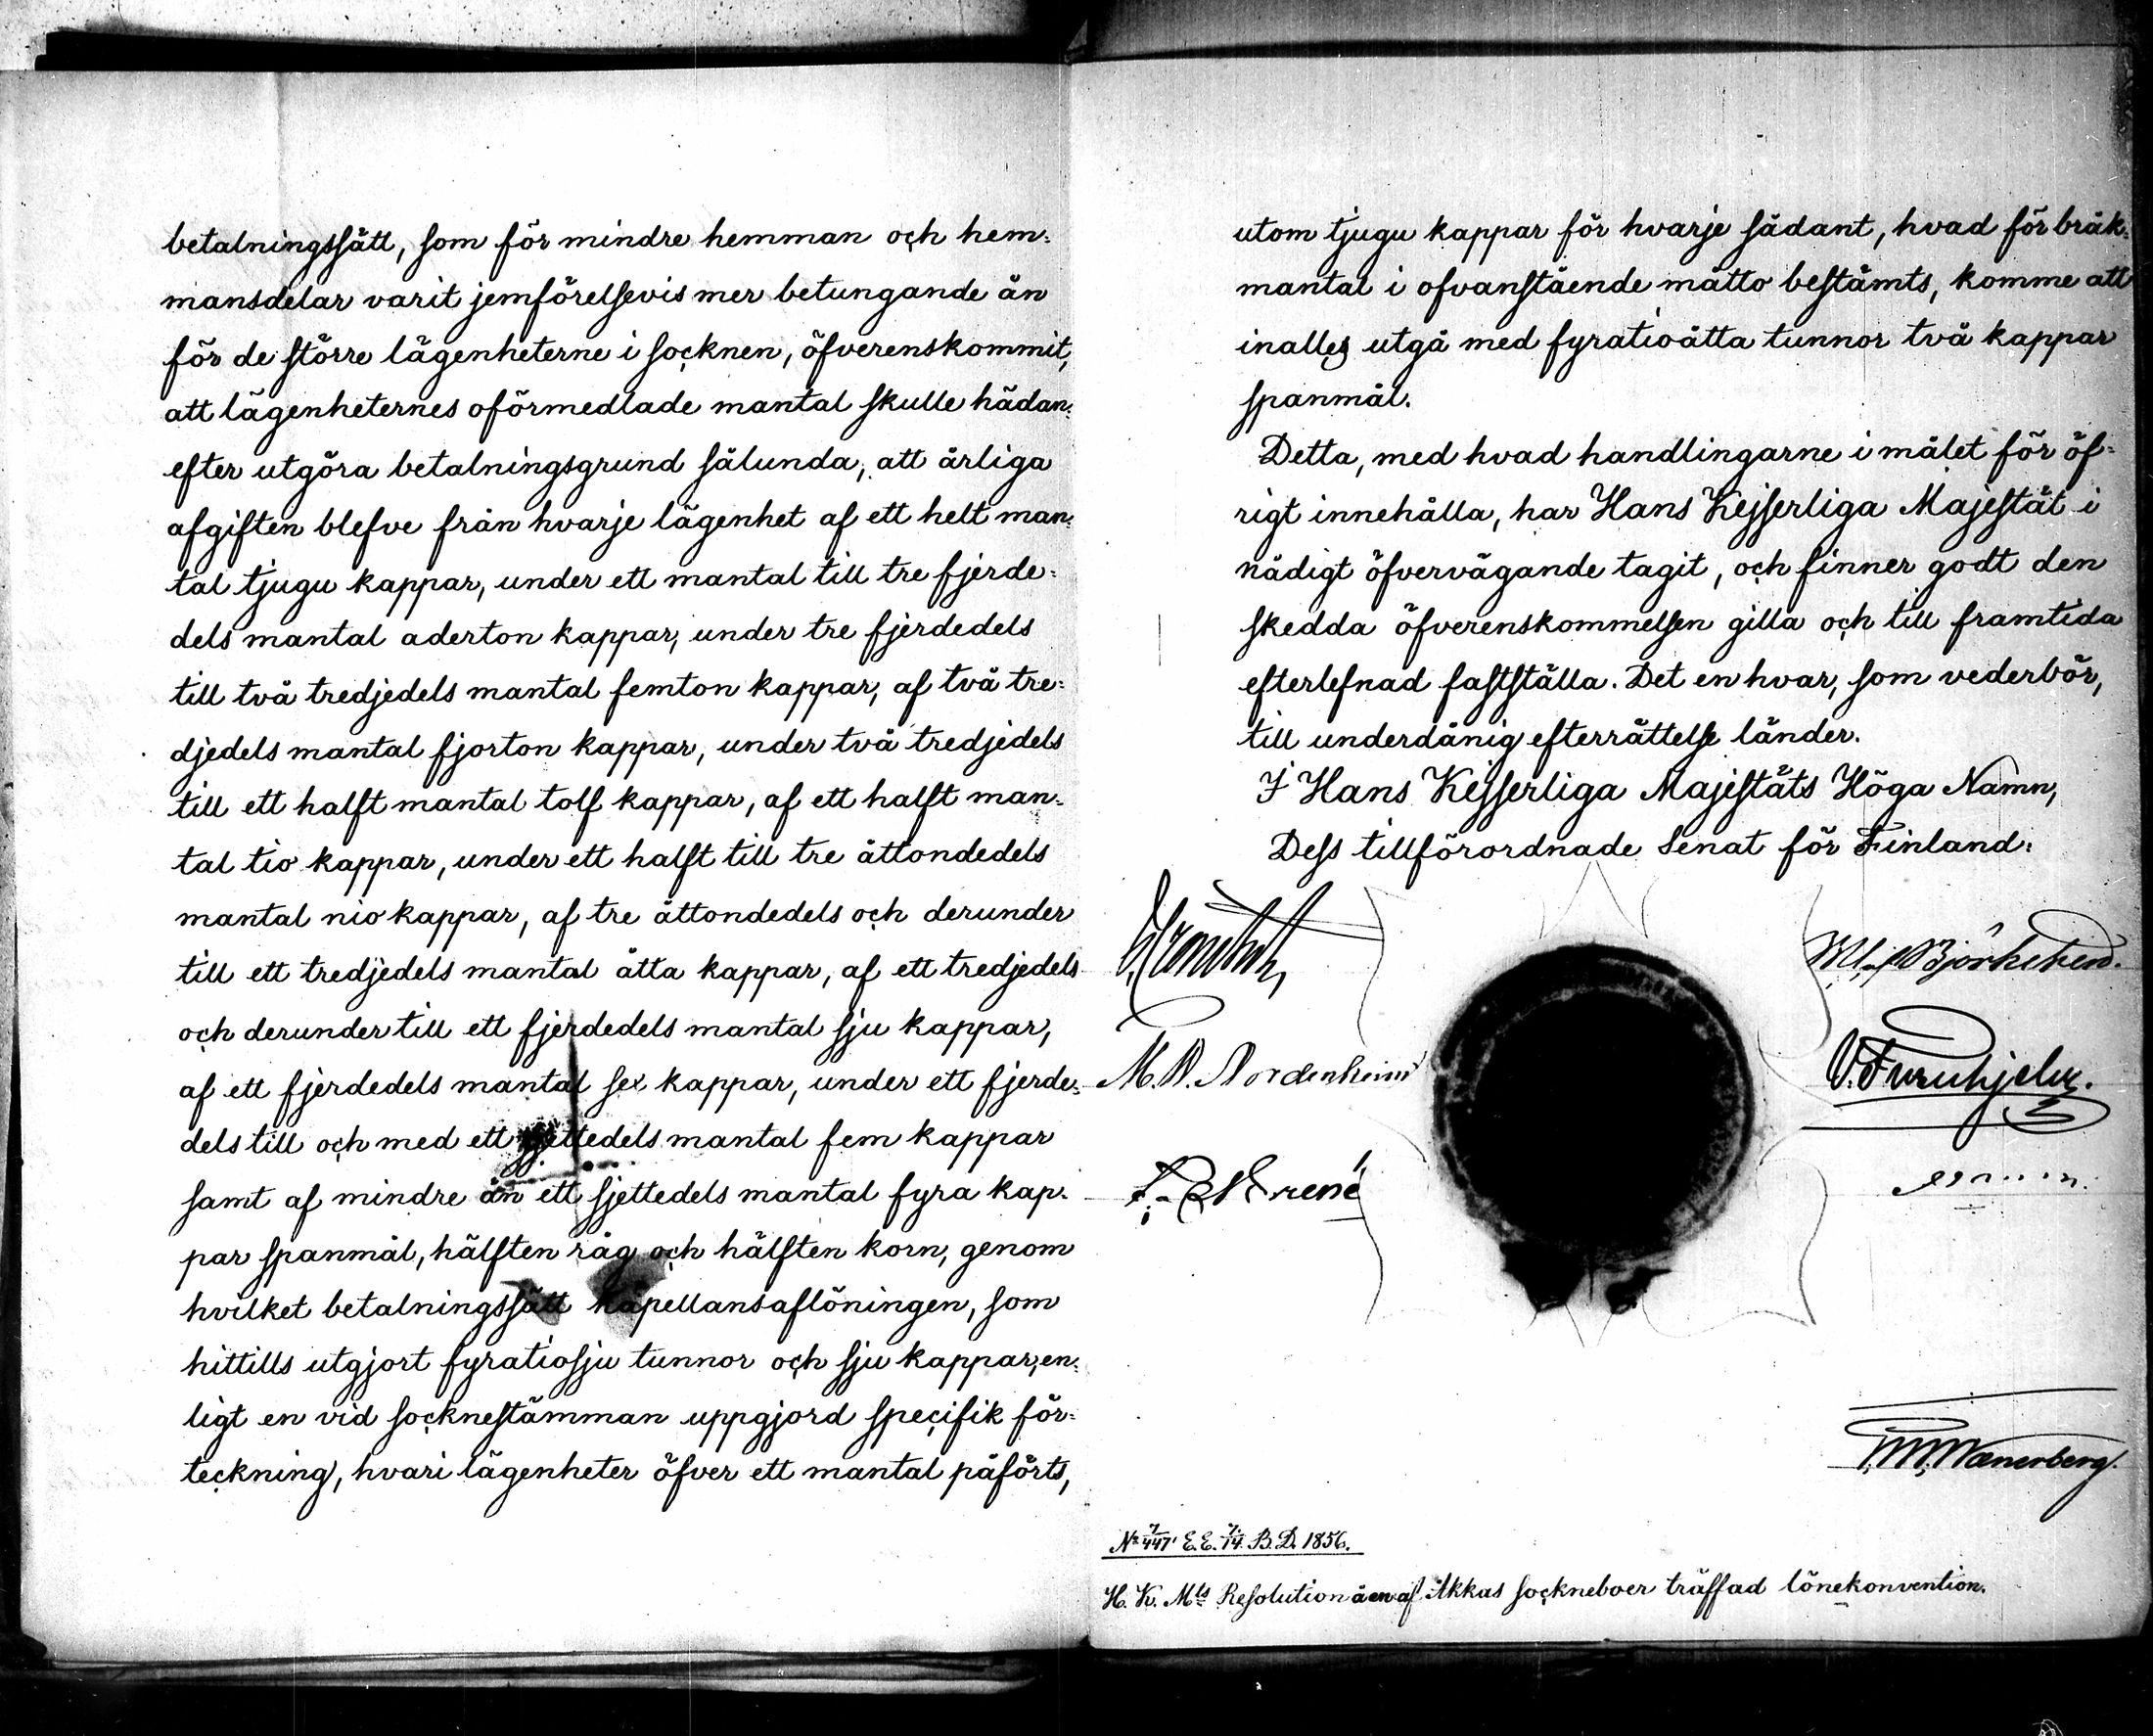 betalningssätt, som för mindre hemman och hem-
mansdelar varit jemförelsevis mer betungande än
för de större lägenheterne i socknen, öfverenskommit,
att lägenheternes oförmedlade mantal skulle hädan-
efter utgöra betalningsgrund sålunda, att årliga
afgiften blefve från hvarje lägenhet af ett helt man-
tal tjugu kappar, under ett mantal till tre fjerde-
dels mantal aderton kappar, under tre fjerdedels
till två tredjedels mantal femton kappar, af två tre-
djedels mantal fjorton kappar, under två tredjedels
till ett halft mantal tolf kappar, af ett halft man-
tal tio kappar, under ett halft till tre åttondedels
mantal nio kappar, af tre åttondedels och derunder
till ett tredjedels mantal åtta kappar, af ett tredjedels
och derunder till ett fjerdedels mantal sju kappar,
af ett fjerdedels mantal sex kappar, under ett fjerde-
dels till och med ett sjettedels mantal fem kappar
samt af mindre än ett sjettedels mantal fyra kap-
par spanmål, hälften råg och hälften korn, genom
hvilket betalningssätt kapellansaflöningen, som
hittills utgjort fyratiosju tunnor och sju kappar, en-
ligt en vid socknestämman uppgjord specifik för-
teckning, hvari lägenheter öfver ett mantal påförts,
utom tjugu kappar för hvarje sådant, hvad för bråk-
mantal i ofvanstående måtto bestämts, komme att
inalles utgå med fyratioåtta tunnor två kappar
spanmål.
Detta, med hvad handlingarne i målet för öf-
rigt innehålla, har Hans Kejserliga Majestät i
nådigt öfvervägande tagit, och finner godt den
skedda öfverenskommelsen gilla och till framtida
efterlefnad fastställa. Det en hvar, som vederbör,
till underdånig efterrättelse länder.
I Hans Kejserliga Majestäts Höga Namn,
Dess tillförordnade Senat för Finland:
Björkesten.
M. W. Nordenheim
O. Furuhjelm.
Wænerberg.
No 7/447 E.E. 7/14 B.D. 1856.
H. K. Mts Resolution å en af Akkas sockneboer träffad lönekonvention.